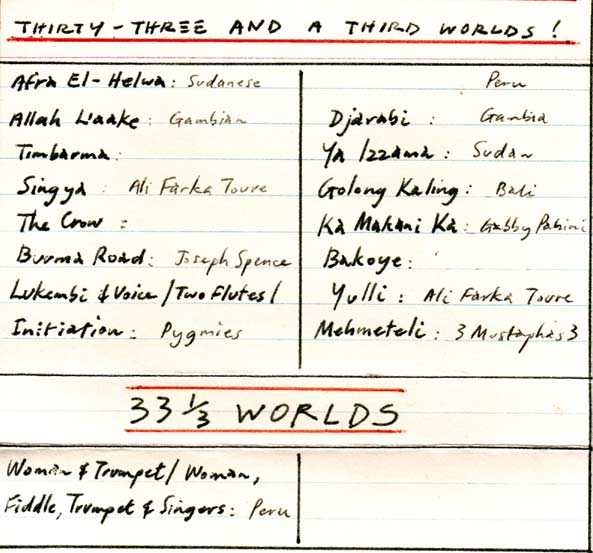 THIRTY-THREE AND A THIRD WORLDS!
Afra El-Helwa: Sudanese
Allah L'aake: Gambian
Timbarma:
Singya: Ali Farka Toure
The Crow:
Burma Road: Joseph Spence
Lukembi & Voice/Two Flutes/
Initiation: Pygmies
Peru
Djarabi: Gambia
Ya Izzama: Sudan
Golong Kaling: Bali
Ka Makani Ka: Gabby Pahini
Bakoye:
Yulli: Ali Farka Toure
Mehmeteli: 3 Mustaphas 3
33 1/3 WORLDS
Woman & Trumpet/Woman,
Fiddle, Trumpet & Singers: Peru